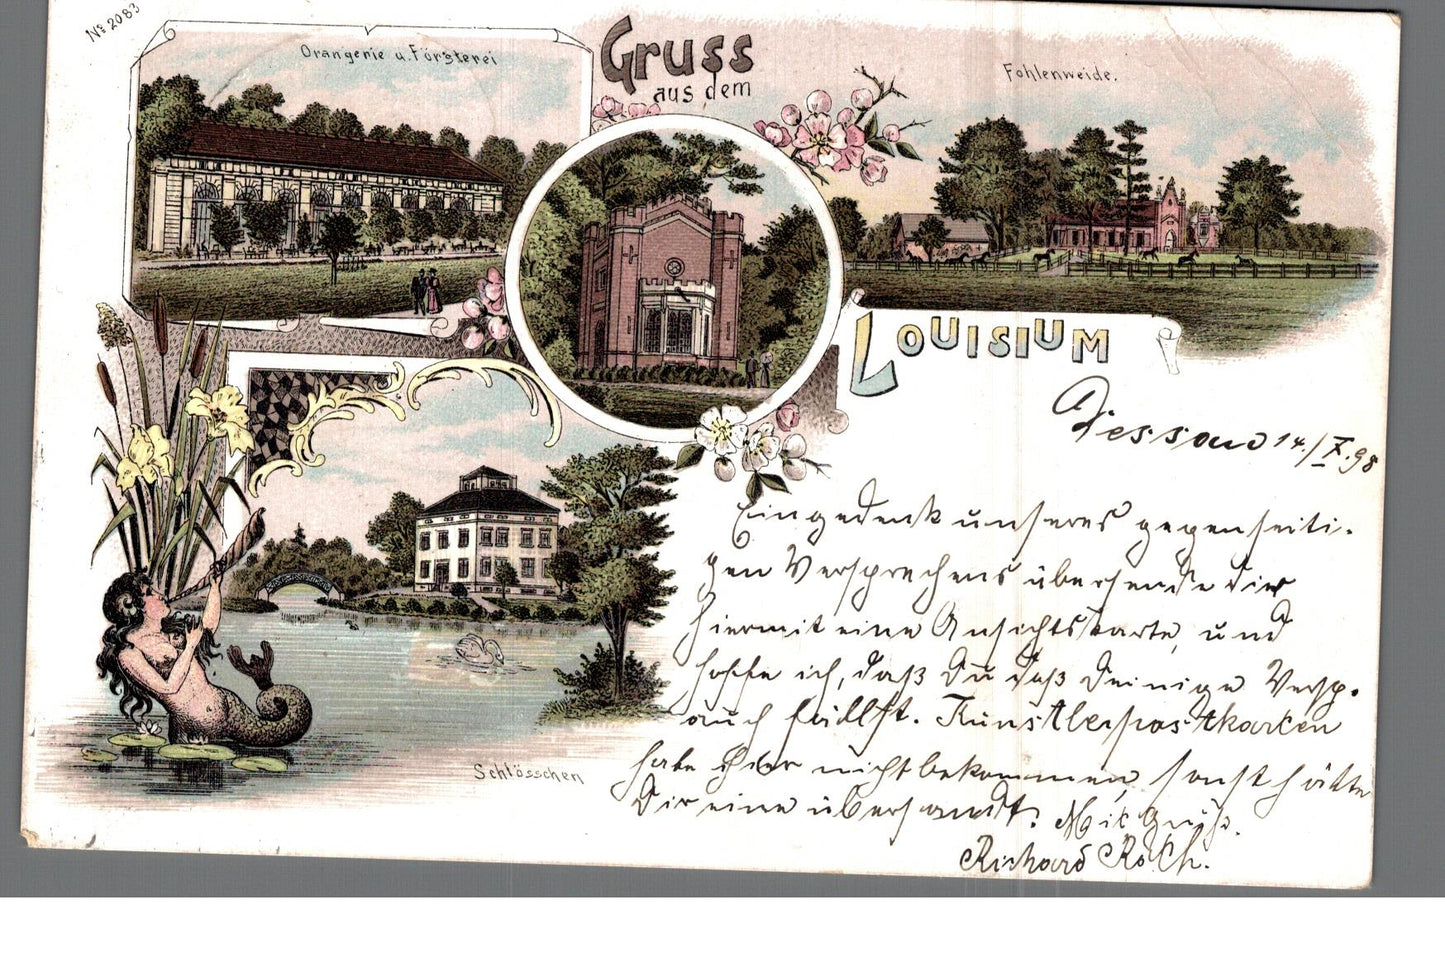 No 2083
Orangerie u. Försterei
Gruss
aus dem
Fohlenweide.
LOUISIUM
Dessau 14./X.98
Eingedenk unseres gegenseiti-
gen Versprechens übersende Dir
hiermit eine Ansichtskarte, und
hoffe ich, daß Du daß Deinige Versp.
auch hällst. Künstlerpostkarten
habe hier nicht bekommen, sonst hätte
Dir eine übersandt. Mit Gruß.
Richard Roth.
Schlösschen